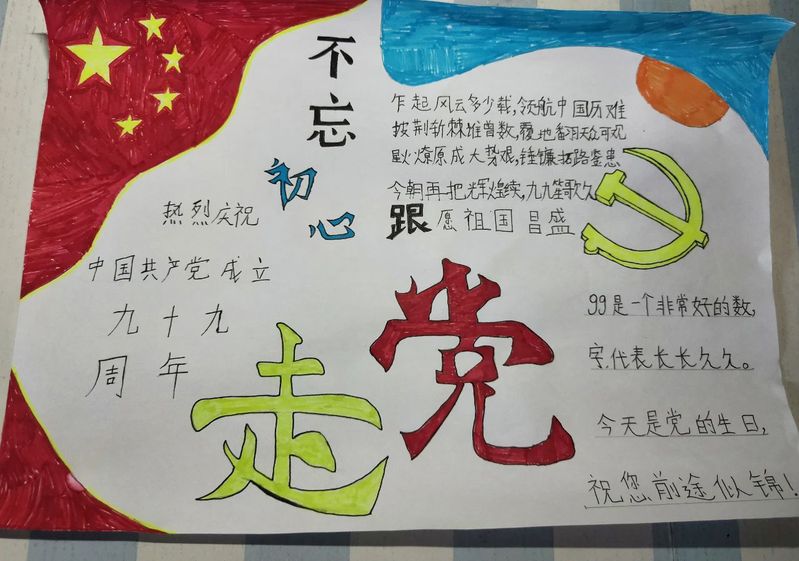 不
忘
初
心
跟
党
走
热烈庆祝
中国共产党成立
九十九
周年
乍起风云多少载,领航中国历难
荆斩棘数,覆地翻天众可观
火燎原成大势艰,锤镰拓路
今朝再把辉煌续,九九笙歌久
愿祖国昌盛
99是一个非常好的数,
字,代表长长久久。
今天是党的生日,
祝您前途似锦!